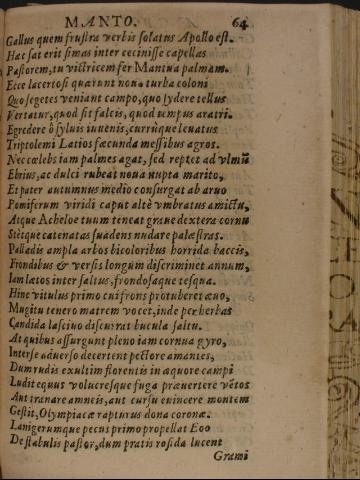 MANTO. 64
Gallus quem frustra verbis solatus Apollo est.
Hac sat erit simas inter cecinisse capellas
Pastorem, tu victricem fer Mantua palmam.
Ecce lacertosi quærunt noua turba coloni
Quo segetes veniant campo, quo sydere tellus
Vertatur, quod sit falcis, quod tempus aratri.
Egredere ô syluis iuuenis, currúque leuatus
Triptolemi Latios fæcunda messibus agros.
Nec cœlebs iam palmes agat, sed reptet ad vlmũ
Ebrius, ac dulci rubeat noua nupta marito,
Et pater autumnus medio consurgat ab aruo
Pomiferum viridi caput altè vmbratus amictu,
Atque Acheloe tuum teneat graue dextera cornu
Stétque catenatas suadens nudare palæstras.
Palladis ampla arbos bicoloribus horrida baccis,
Frondibus & versis longum discriminet annum,
Iam latos inter saltus, frondosaque tesqua.
Hinc vitulus primo cui frons protuberet æuo,
Mugitu tenero matrem vocet, inde per herbas
Candida lasciuo discurrat bucula saltu.
At quibus assurgunt pleno iam cornua gyro,
Inter se aduerso decertent pectore amantes,
Dum rudis exultim florentis in æquore campi
Ludit equus volucresque fuga præuertere vẽtos
Aut tranare amneis, aut cursu euincere montem
Gestit, Olympiacæ rapturus dona coronæ.
Lanigerumque pecus primo propellat Eoo
De stabulis pastor, dum pratis rosida lucent
Grami